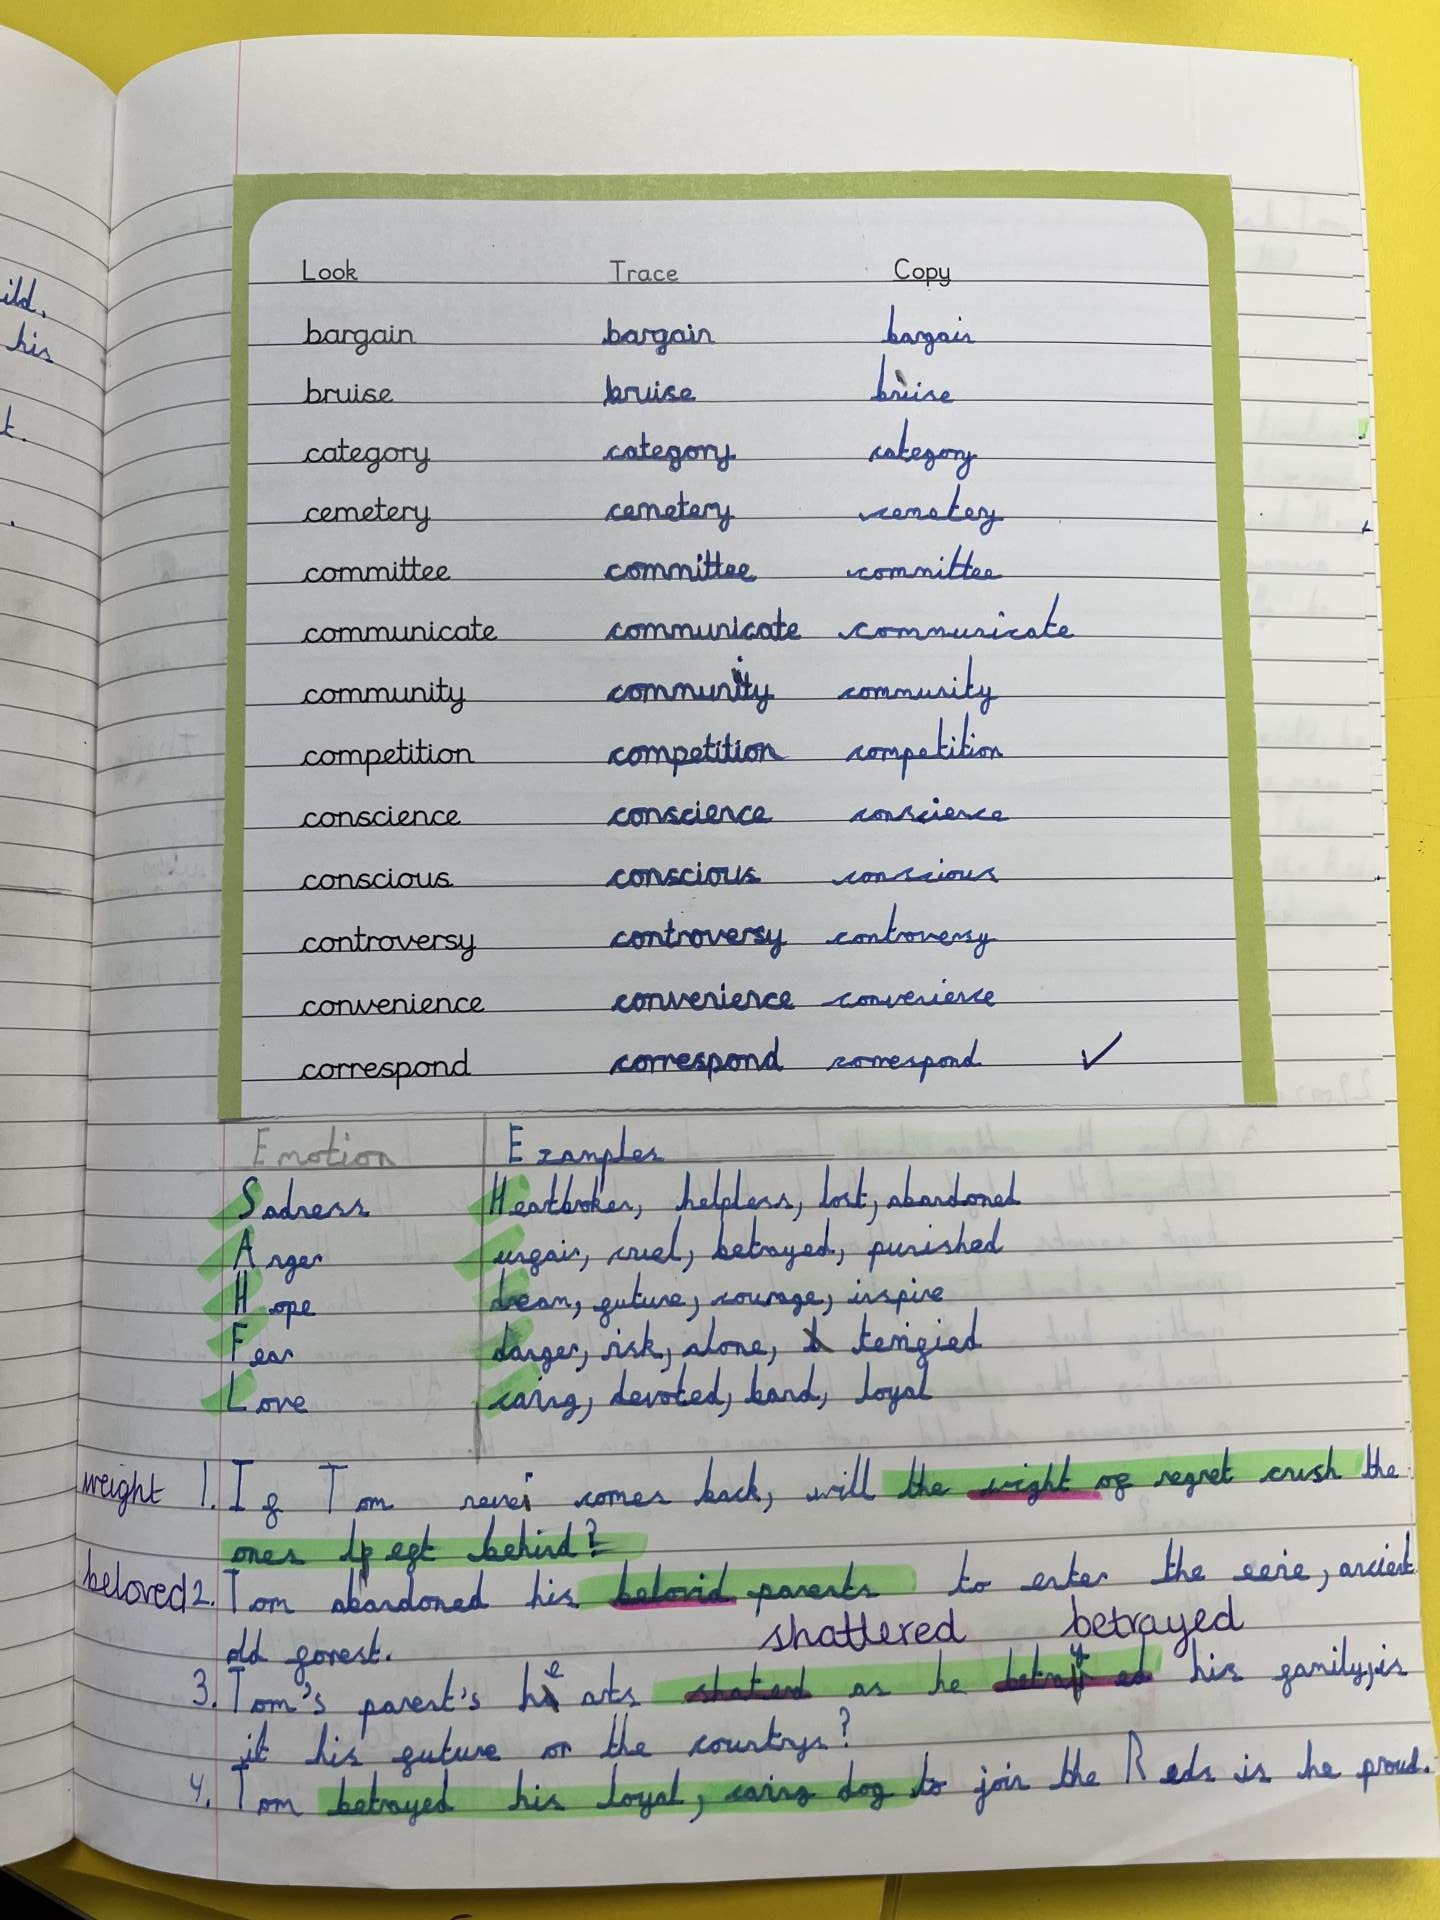 ild.
his
t.
Look Trace Copy
bargain bargain bargain
bruise bruise bruise
category category category
cemetery cemetery cemetery
committee committee committee
communicate communicate communicate
community community community
competition competition competition
conscience conscience conscience
conscious conscious conscious
controversy controversy controversy
convenience convenience convenience
correspond correspond correspond ✓
Emotion Examples
Sadness Heatbroken, helpless, lost, abandoned
Anger unfair, cruel, betrayed, punished
Hope dream, future, courage, inspire
Fear danger, risk, alone, terrified
Love caring, devoted, bond, loyal
weight 1. If Tom never comes back, will the wight of regret crush the
ones left behind?
beloved 2. Tom abandoned his belovid parents to enter the eerie, ancient
old forest.
shattered betrayed
3. Tom's parent's hearts shaterd as he betrayed his family, is
it his future or the countrys?
4. Tom betrayed his loyal, caring dog to join the Reds is he proud.